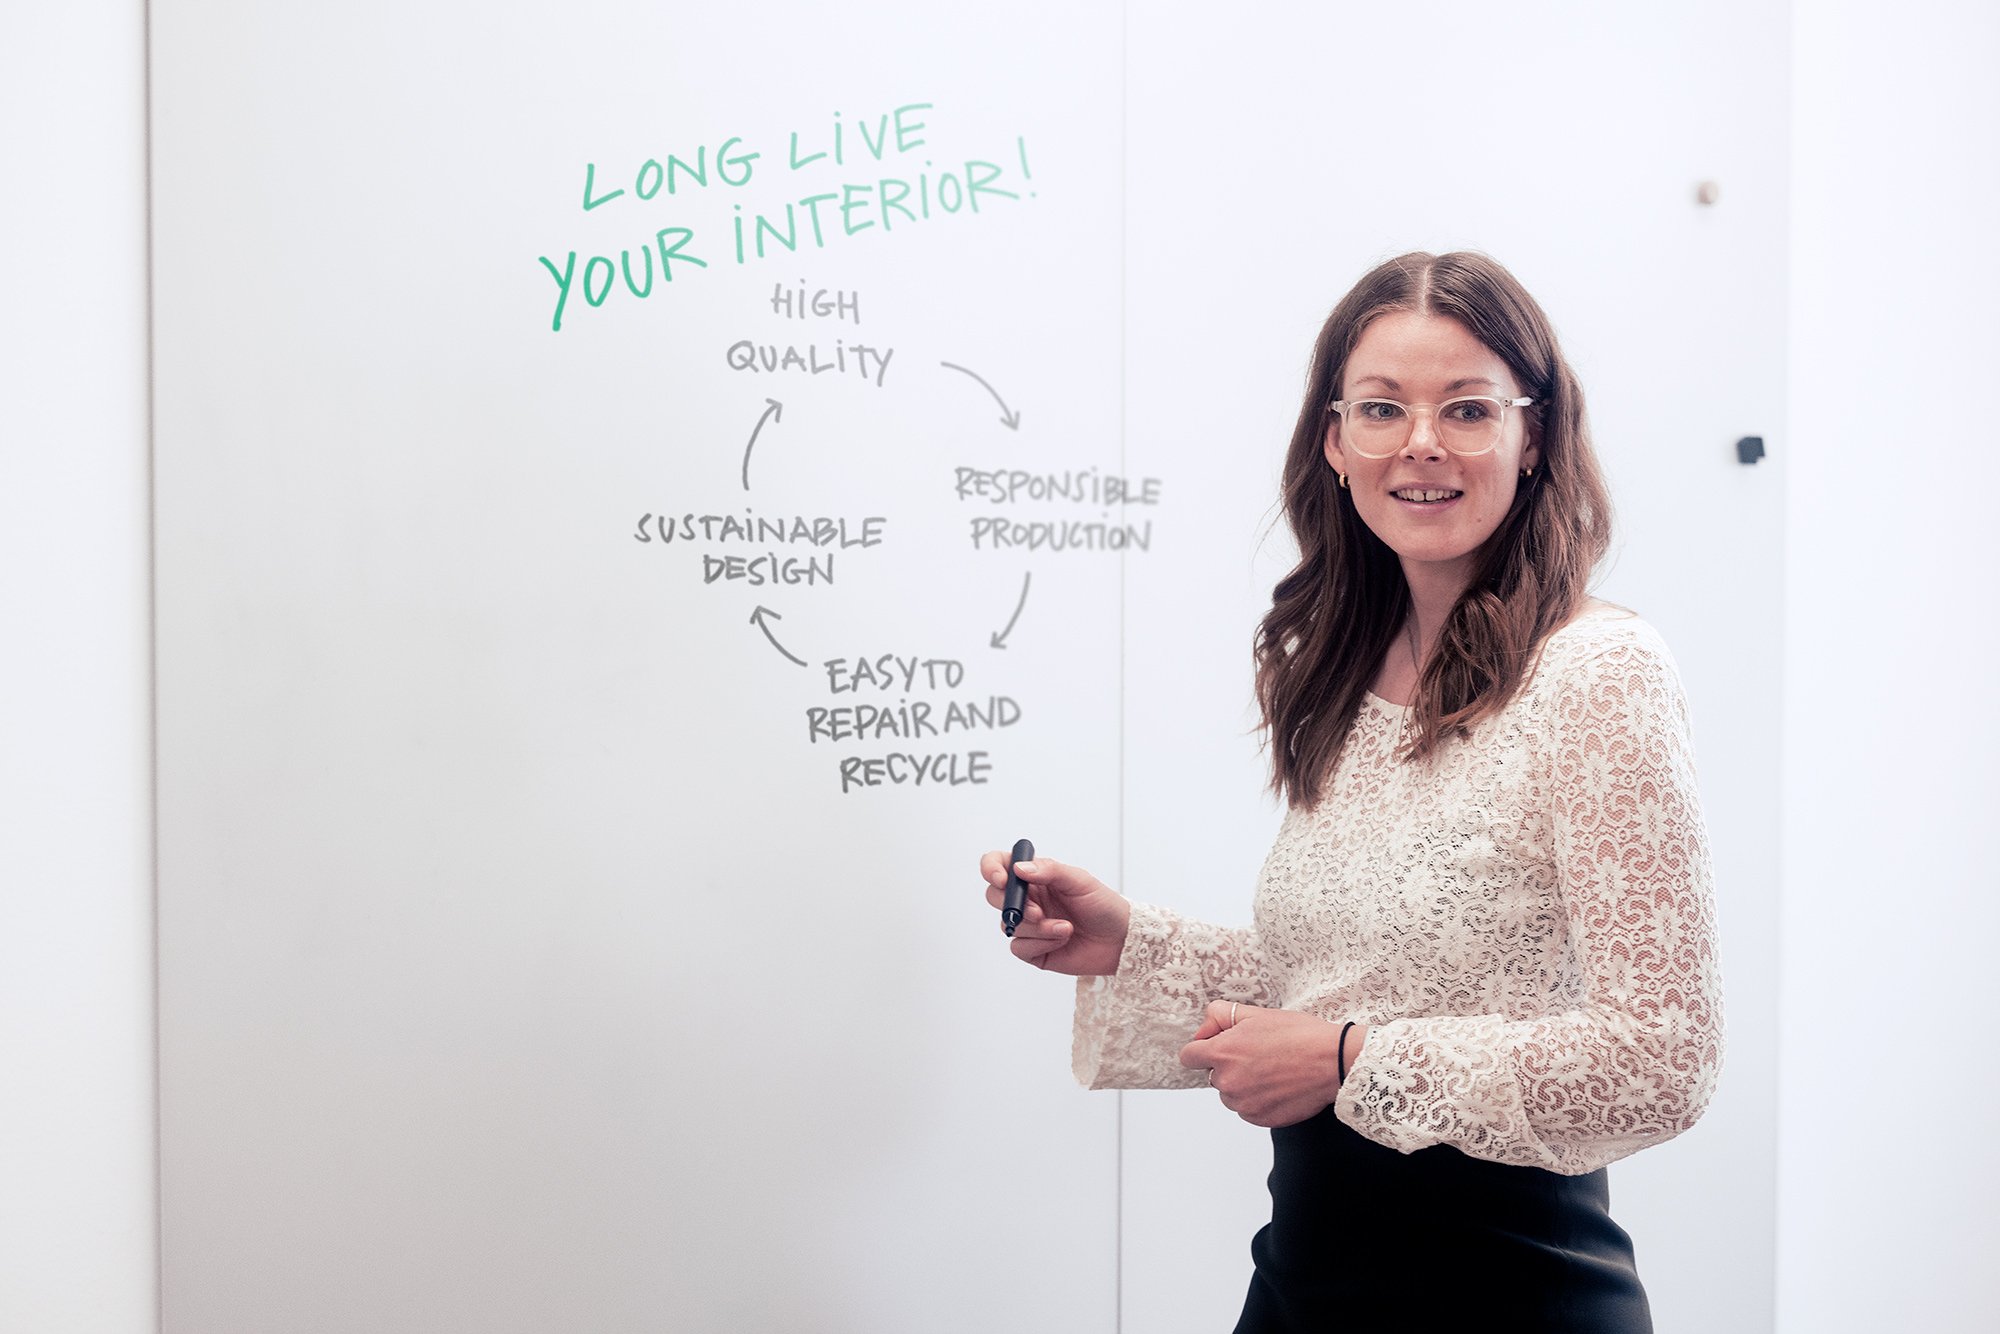 LONG LIVE
YOUR INTERIOR!
HIGH
QUALITY
RESPONSIBLE
PRODUCTION
SUSTAINABLE
DESIGN
EASY TO
REPAIR AND
RECYCLE